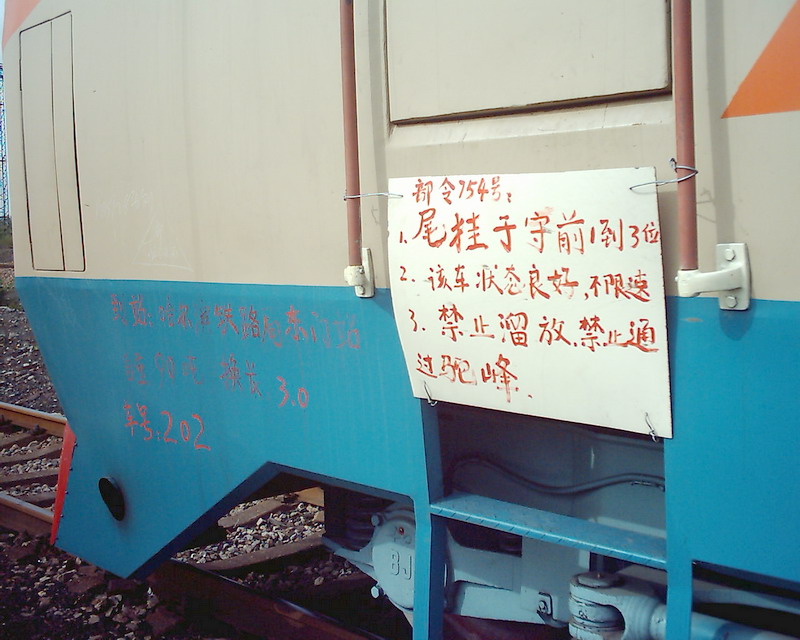 部令754号:
1. 尾挂于守前1到3位
2. 该车状态良好,不限速
3. 禁止溜放.禁止通
过驼峰.
铁路
90吨 换长 3.0
车号:202
BJ